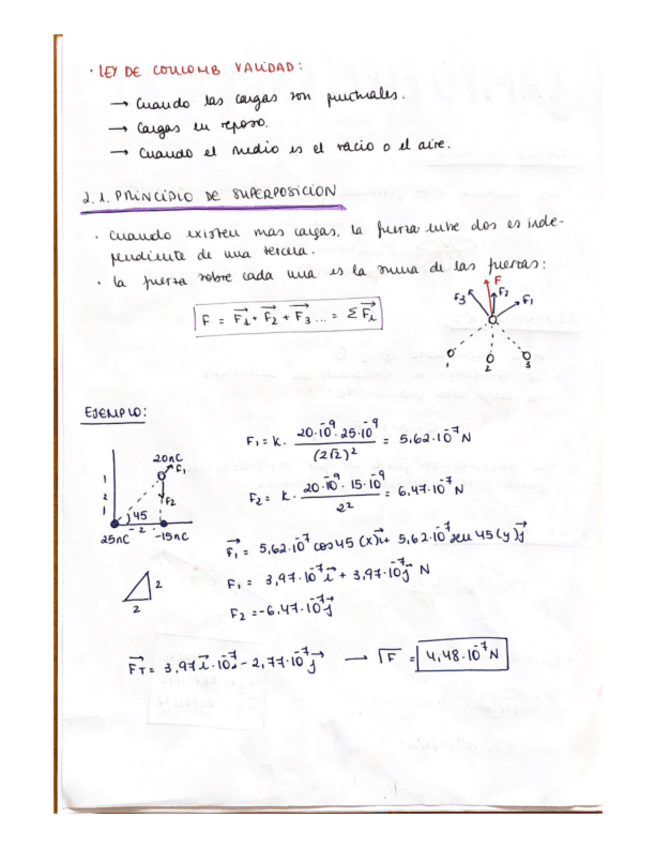 · LEY DE COULOMB VALIDAD:
→ Cuando las cargas son puntuales.
→ Cargas en reposo.
→ Cuando el medio es el vacío o el aire.
2.1. PRINCIPIO DE SUPERPOSICION
· Cuando existen mas cargas, la fuerza entre dos es inde-
pendiente de una tercera.
· La fuerza sobre cada una es la suma de las fuerzas:
F = F⃗1 + F⃗2 + F⃗3 ... = Σ F⃗i
F
F3 F2 F1
1 2 3
EJEMPLO:
F1 = K · 20·10⁻⁹·25·10⁻⁹ / (2√2)² = 5,62·10⁻⁷ N
20nC
F1
F2 = K · 20·10⁻⁹·15·10⁻⁹ / 2² = 6,47·10⁻⁷ N
F2
2
45
2
25nC -15nC
F⃗1 = 5,62·10⁻⁷ cos45 (x)i⃗ + 5,62·10⁻⁷ sen45 (y)j⃗
F1 = 3,97·10⁻⁷ i⃗ + 3,97·10⁻⁷ j⃗ N
2
2
F2 = -6,47·10⁻⁷ j⃗
F⃗T = 3,97 i⃗·10⁻⁷ - 2,77·10⁻⁷ j⃗ → F = 4,48·10⁻⁷ N